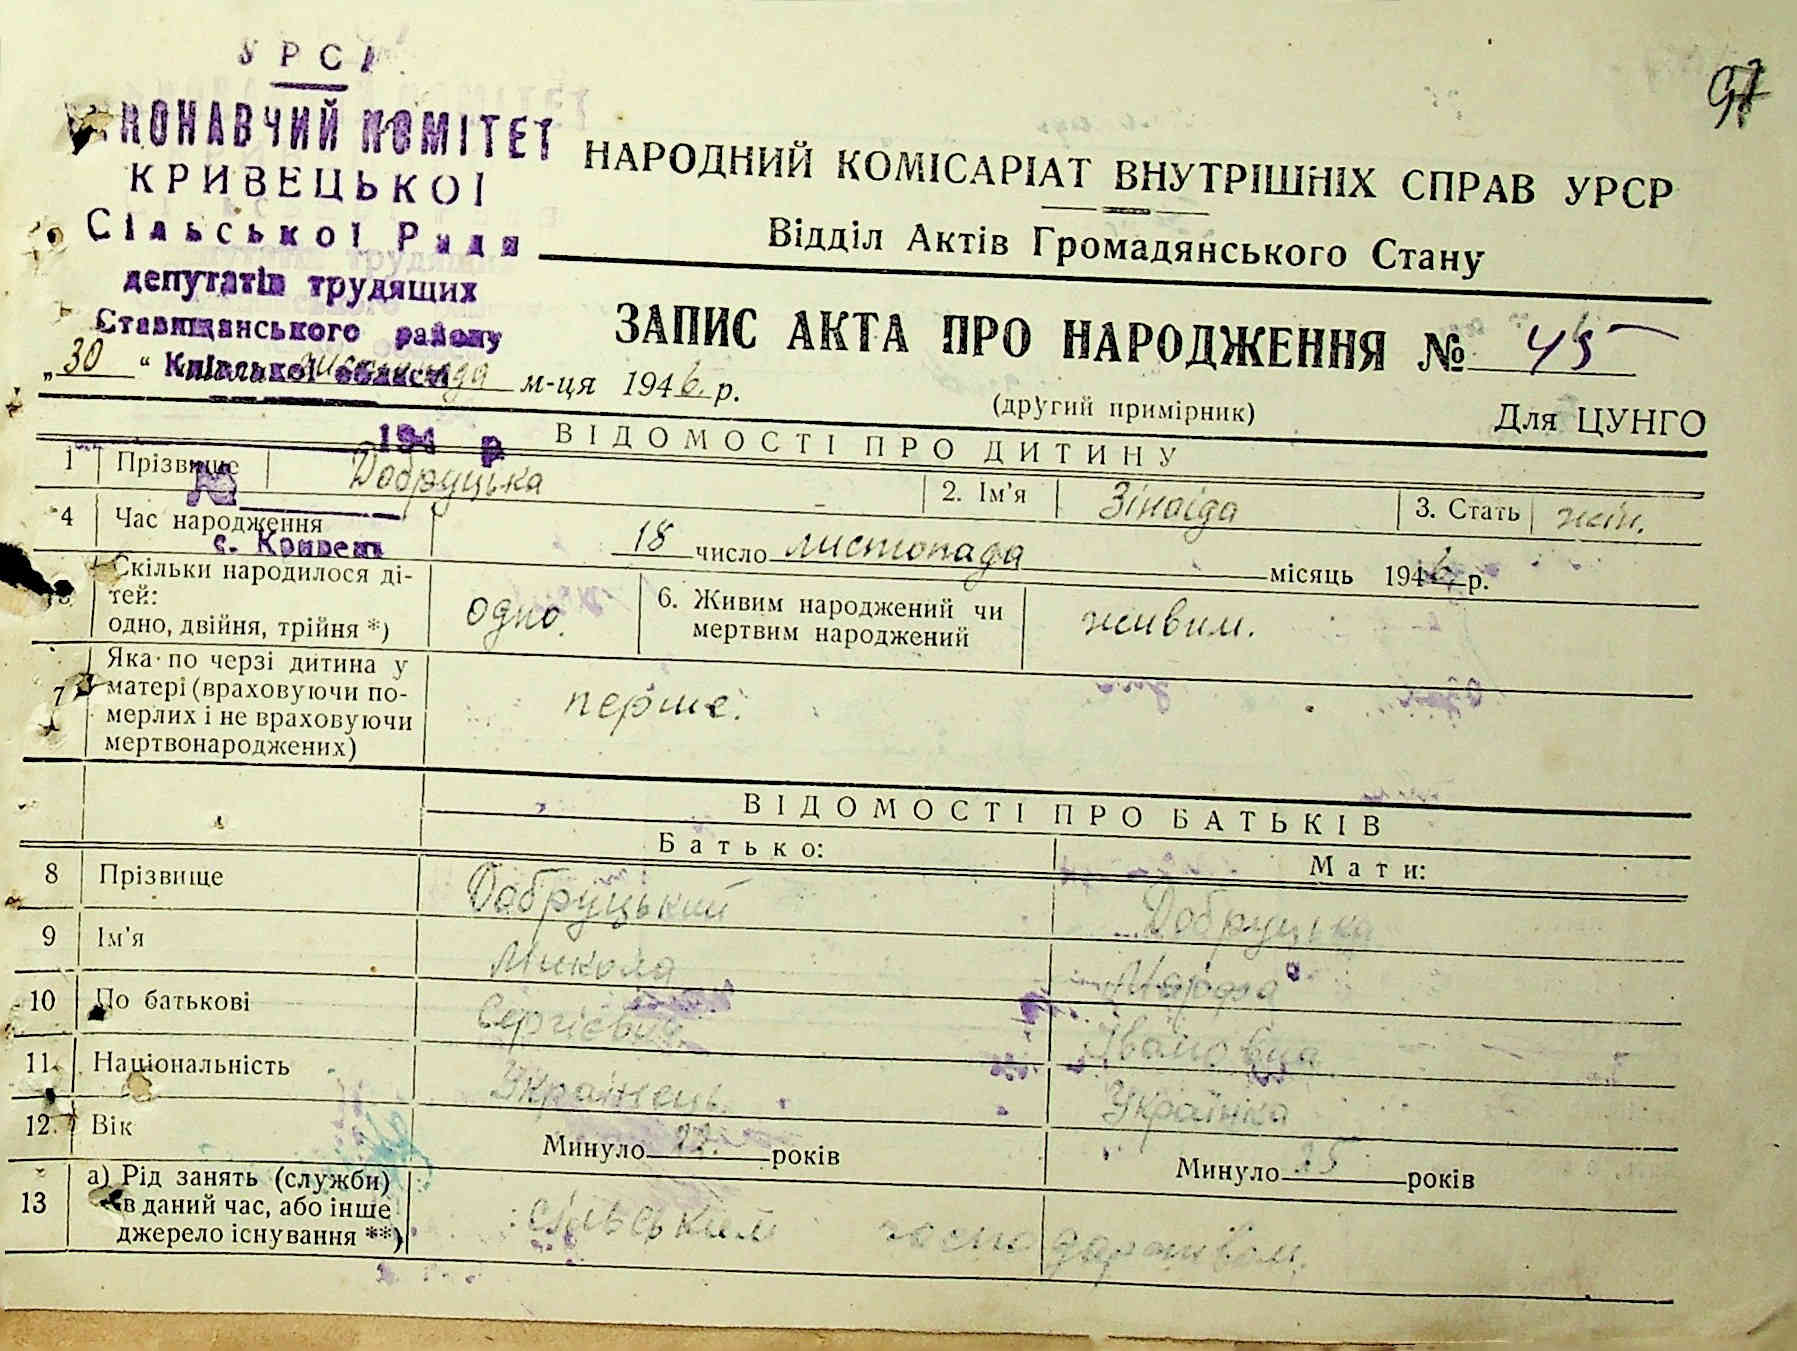 УРСР
ВИКОНАВЧИЙ КОМІТЕТ
КРИВЕЦЬКОЇ
Сільської Ради
депутатів трудящих
Ставищанського району
Київської області
194 р.
№
с. Кривець
97
НАРОДНИЙ КОМІСАРІАТ ВНУТРІШНІХ СПРАВ УРСР
Відділ Актів Громадянського Стану
ЗАПИС АКТА ПРО НАРОДЖЕННЯ № 45
„30“ листопада м-ця 1946 р.
(другий примірник) Для ЦУНГО
ВІДОМОСТІ ПРО ДИТИНУ
1 Прізвище Добруцька 2. Ім'я Зінаіда 3. Стать жін.
4 Час народження 18 число листопада місяць 1946 р.
5 Скільки народилося ді-
тей:
одно, двійня, трійня *) одно. 6. Живим народжений чи
мертвим народжений живим.
7 Яка по черзі дитина у
матері (враховуючи по-
мерлих і не враховуючи
мертвонароджених) перше.
ВІДОМОСТІ ПРО БАТЬКІВ
Батько: Мати:
8 Прізвище Добруцький Добруцька
9 Ім'я Микола Марфа
10 По батькові Сергієвич Івановна
11 Національність Українець Українка
12 Вік Минуло років Минуло 25 років
13 а) Рід занять (служби)
в даний час, або інше
джерело існування **) сільським господарством.